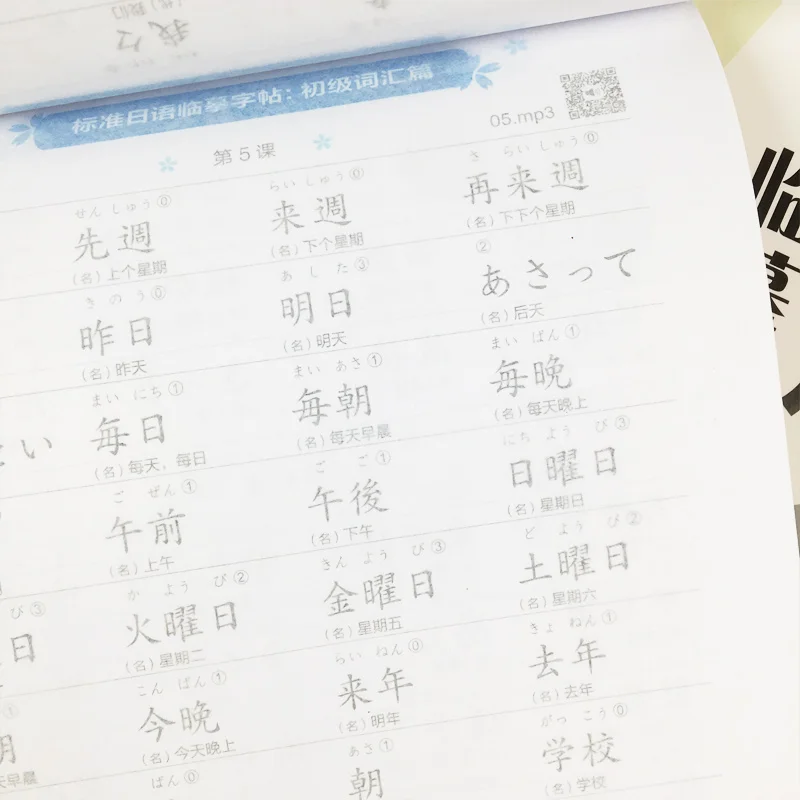 标准日语临摹字帖：初级词汇篇
05.mp3
第5课
せんしゅう⓪ らいしゅう⓪ さらいしゅう⓪
先週 来週 再来週
（名）上个星期 （名）下个星期 （名）下下个星期
きのう⓪ あした③ ②
昨日 明日 あさって
（名）昨天 （名）明天 （名）后天
まいにち① まいあさ① まいばん①
毎日 毎朝 毎晩
（名）每天，每日 （名）每天早晨 （名）每天晚上
ごぜん① ごご① にちようび③
午前 午後 日曜日
（名）上午 （名）下午 （名）星期日
び③ かようび② きんようび③ どようび②
日 火曜日 金曜日 土曜日
（名）星期二 （名）星期五 （名）星期六
① こんばん① らいねん⓪ きょねん①
朝 今晩 来年 去年
天早晨 （名）今天晚上 （名）明年 （名）去年
ばん⓪ あさ① がっこう⓪
朝 学校
（名）学校
临
摹